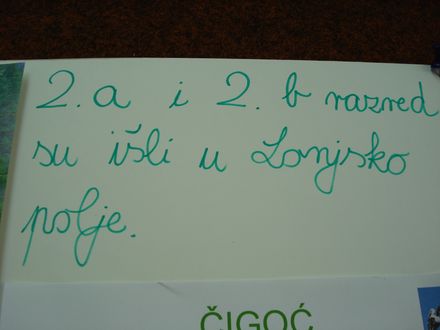 2. a i 2. b razred
su išli u Lonjsko
polje.
ČIGOĆ